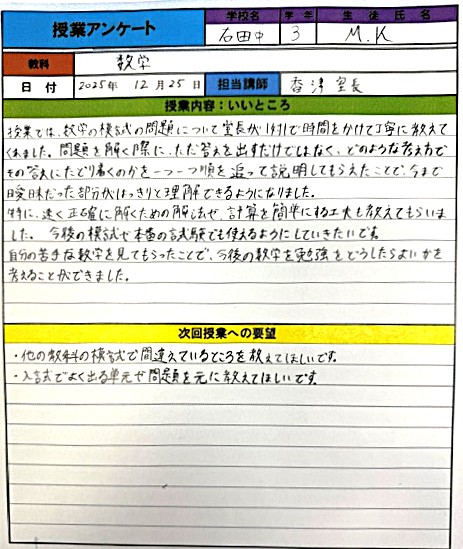 授業アンケート
学校名 学年 生徒氏名
石田中 3 M.K
教科 数学
日付 2025年 12月 25日 担当講師 香津室長
授業内容：いいところ
授業では、数学の模試の問題について室長が1対1で時間をかけて丁寧に教えて
くれました。問題を解く際に、ただ答えを出すだけではなく、どのような考え方で
その答えにたどり着くのかを一つ一つ順を追って説明してもらえたことで、今まで
曖昧だった部分がはっきりと理解できるようになりました。
特に、速く正確に解くための解法や、計算を簡単にする工夫も教えてもらいま
した。今後の模試や本番の試験でも使えるようにしていきたいです。
自分の苦手な数学を見てもらったことで、今後の数学を勉強をどうしたらよいかを
考えることができました。
次回授業への要望
・他の教科の模試で間違えているところを教えてほしいです。
・入試でよく出る単元や問題を元に教えてほしいです。